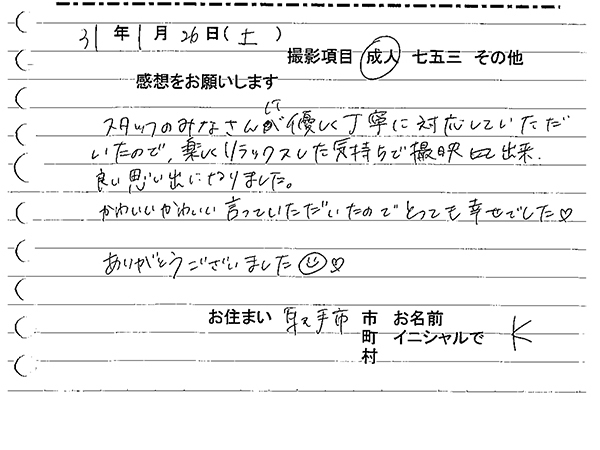 31年 1月 26日(土)
撮影項目 成人 七五三 その他
感想をお願いします
スタッフのみなさんが 優しく丁寧に対応していただ
いたので、楽しくリラックスした気持ちで撮映出来、
良い思い出になりました。
かわいいかわいい言っていただいたのでとっても幸せでした♡
ありがとうございました☺♡
お住まい 取手市 市 お名前
町 イニシャルで K
村